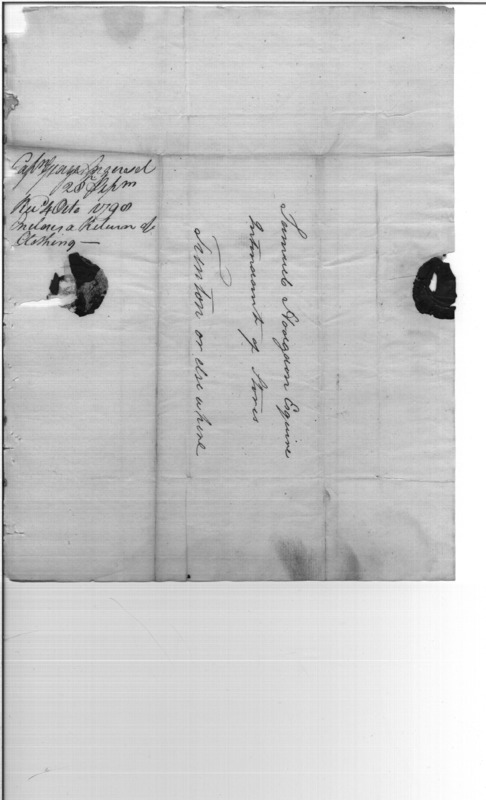 Capn George Ingersol
28 Sepm
Recd 4 Octo 1798
Incloses a Return of
Clothing —
Samuel Hodgdon Esquire
Intendant of Stores
Trenton or else where